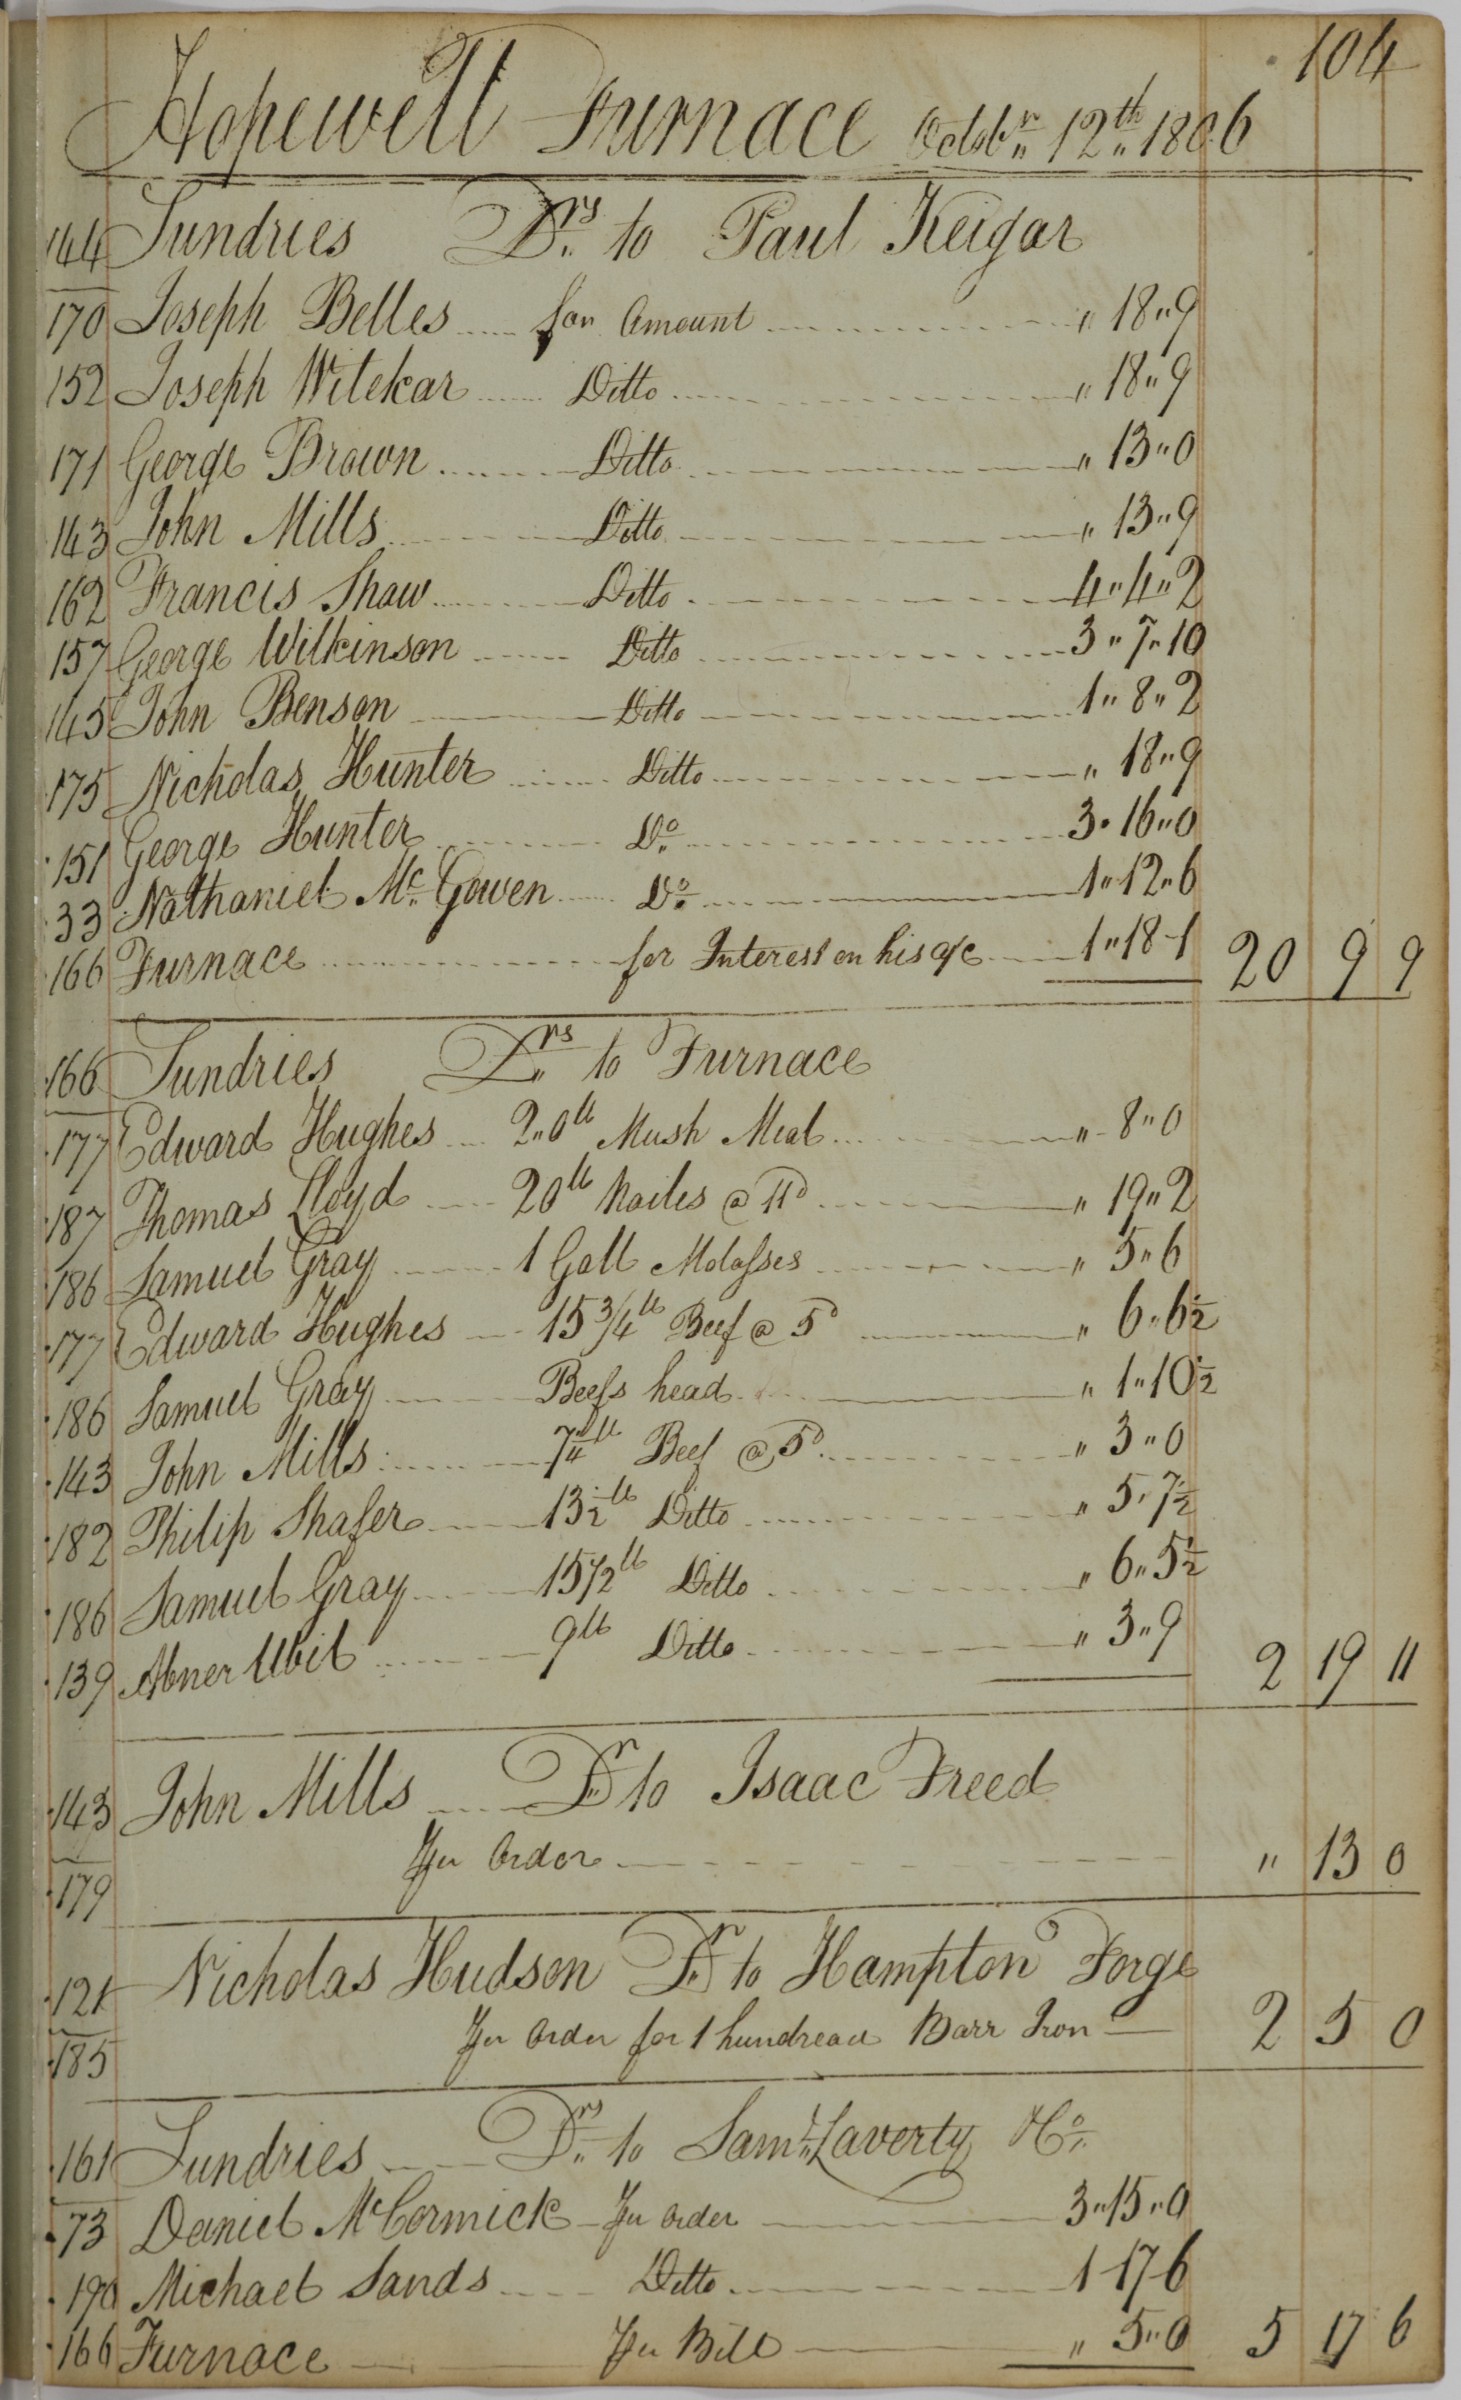 104
Hopewell Furnace Octobr 12th 1806
144 Sundries Drs to Paul Keigar
170 Joseph Belles for Amount " 18 " 9
152 Joseph Witekar Ditto " 18 " 9
171 George Brown Ditto " 13 " 0
143 John Mills Ditto " 13 " 9
162 Francis Shaw Ditto 4 " 4 " 2
157 George Wilkinson Ditto 3 " 7 " 10
145 John Benson Ditto 1 " 8 " 2
175 Nicholas Hunter Ditto " 18 " 9
151 George Hunter Do 3 " 16 " 0
33 Nathaniel Mc Gowen Do 1 " 12 " 6
166 Furnace for Interest on his a/c 1 " 18 - 1 20 9 9
166 Sundries Drs to Furnace
177 Edward Hughes 2 " 0 lb Mush Meal " 8 " 0
187 Thomas Lloyd 20 lb Nailes @ 11d " 19 " 2
186 Samuel Gray 1 Gall Molasses " 5 " 6
177 Edward Hughes 15 3/4 lb Beef @ 5d " 6 " 6 1/2
186 Samuel Gray Beefs head " 1 " 10 1/2
143 John Mills 7 1/4 lb Beef @ 5d " 3 " 0
182 Philip Shafer 13 1/2 lb Ditto " 5 " 7 1/2
186 Samuel Gray 15 1/2 lb Ditto " 6 " 5 1/2
139 Abner 9 lb Ditto " 3 " 9 2 19 11
143 John Mills Dr to Isaac Freed
179 Per Order " 13 0
121 Nicholas Hudson Dr to Hampton Forge
185 Per Order for 1 hundread Barr Iron 2 5 0
161 Sundries Drs to Saml Laverty
73 Daniel McCormick Per Order 3 " 15 " 0
190 Michael Sands Ditto 1 17 6
166 Furnace Per Bill " 5 " 0 5 17 6